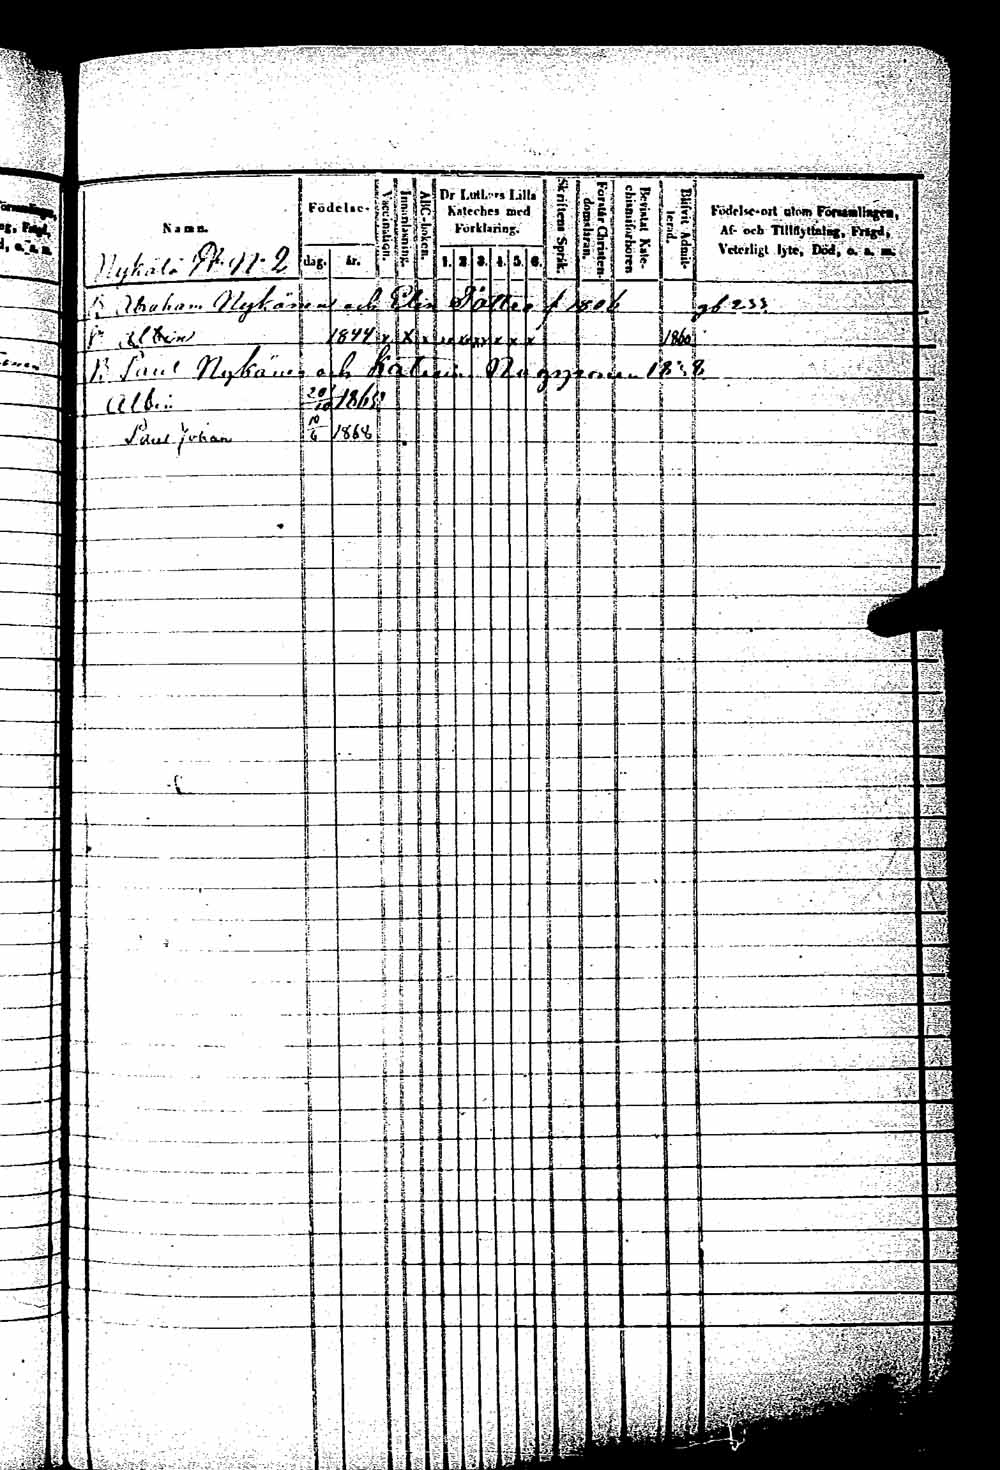 Namn.
Födelse-
dag. år.
Vaccination.
Innanläsning.
ABC-boken.
Dr Luthers Lilla
Kateches med
Förklaring.
1. 2. 3. 4. 5. 6.
Skriftens Språk.
Förstår Christen-
domsläran.
Bevistat Kate-
chismiförhören
Blifvit Admit-
terad.
Födelse-ort utom Församlingen,
Af- och Tillflyttning, Frägd,
Veterligt lyte, Död, o. s. m.
Nykälä № 2
B Abraham Nykänen och Elin f 1806 gb 233
Albin 1844 x x x x x x x x x 1860
B Paul Nykänen och Katarin
Albin 20/10 1865
Paul Johan 10/6 1868